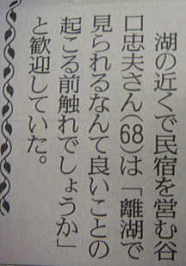 湖の近くで民宿を営む谷
口忠夫さん(68)は「離湖で
見られるなんて良いことの
起こる前触れでしょうか」
と歓迎していた。